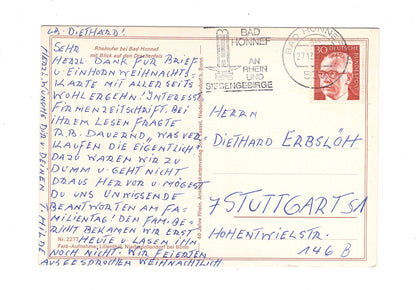 LB. DIETHARD!
Rheinufer bei Bad Honnef
mit Blick auf den Drachenfels
SEHR
HERZL DANK FÜR BRIEF
U EINHORN WEIHNACHTS-
KARTE MIT ALLERSEITS
WOHLERGEHN. INTERESST.
FIRMENZEITSCHRIFT. BEI
IHREM LESEN FRAGTE
R.B. DAUERND „WAS VER-
KAUFEN DIE EIGENTLICH".
DAZU WAREN WIR ZU
DUMM U GEHT NICHT
DRAUS HERVOR U MÖGEST
DU UNS UNWISSENDE
BEANTWORTEN AM FA-
MILIENTAG! DEN FAM.BE-
RICHT BEKAMEN WIR ERST
HEUTE U LASEN IHN
NOCH NICHT. WIR FEIERTEN
AUSGESPROCHEN WEIHNACHTLICH
Nr. 2277
Farb-Aufnahme: Lilienthal, Niederdollendorf bei Bonn
HERZL WÜNSCHE DIR U DEINEN
BAD
HONNEF
AN
RHEIN
UND
SIEBENGEBIRGE
BAD HONNEF
30 DEUTSCHE
HERRN
DIETHARD ERBSLÖH
7 STUTTGART S1
HOHENTWIELSTR.
146 B